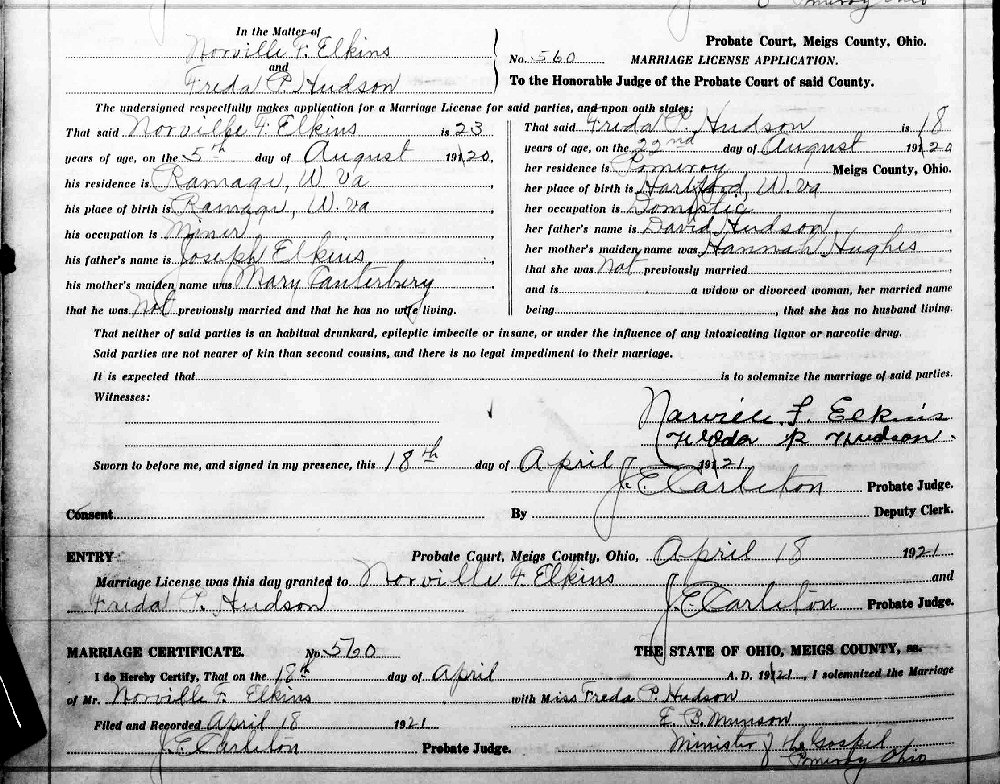 Pomeroy Ohio
In the Matter of
Norville F. Elkins
and
Freda P. Hudson
Probate Court, Meigs County, Ohio.
No. 560 MARRIAGE LICENSE APPLICATION.
To the Honorable Judge of the Probate Court of said County.
The undersigned respectfully makes application for a Marriage License for said parties, and upon oath states:
That said Norville F. Elkins is 23
years of age, on the 5th day of August 1920,
his residence is Ramage, W Va,
his place of birth is Ramage, W. Va,
his occupation is Miner
his father's name is Joseph Elkins,
his mother's maiden name was Mary Canterbury
that he was Not previously married and that he has no wife living.
That said Freda P. Hudson is 18
years of age, on the 22nd day of August 1920
her residence is Pomeroy Meigs County, Ohio.
her place of birth is Hartford, W. Va,
her occupation is Domestic,
her father's name is David Hudson,
her mother's maiden name was Hannah Hughes
that she was Not previously married
and is a widow or divorced woman, her married name
being, that she has no husband living.
That neither of said parties is an habitual drunkard, epileptic imbecile or insane, or under the influence of any intoxicating liquor or narcotic drug.
Said parties are not nearer of kin than second cousins, and there is no legal impediment to their marriage.
It is expected that is to solemnize the marriage of said parties.
Witnesses:
Norville F. Elkins
P Hudson.
Sworn to before me, and signed in my presence, this 18th day of April 1921
J. E. Carleton Probate Judge.
Consent By Deputy Clerk.
ENTRY Probate Court, Meigs County, Ohio, April 18 1921
Marriage License was this day granted to Norville F. Elkins and
Freda P. Hudson J. E. Carleton Probate Judge.
MARRIAGE CERTIFICATE. No. 560 THE STATE OF OHIO, MEIGS COUNTY, ss.
I do Hereby Certify, That on the 18th day of April A. D. 1921, I solemnized the Marriage
of Mr. Norville F. Elkins with Miss Freda P. Hudson
Filed and Recorded April 18 1921 E. B. Munson
J. E. Carleton Probate Judge. Minister of the Gospel
Pomeroy Ohio